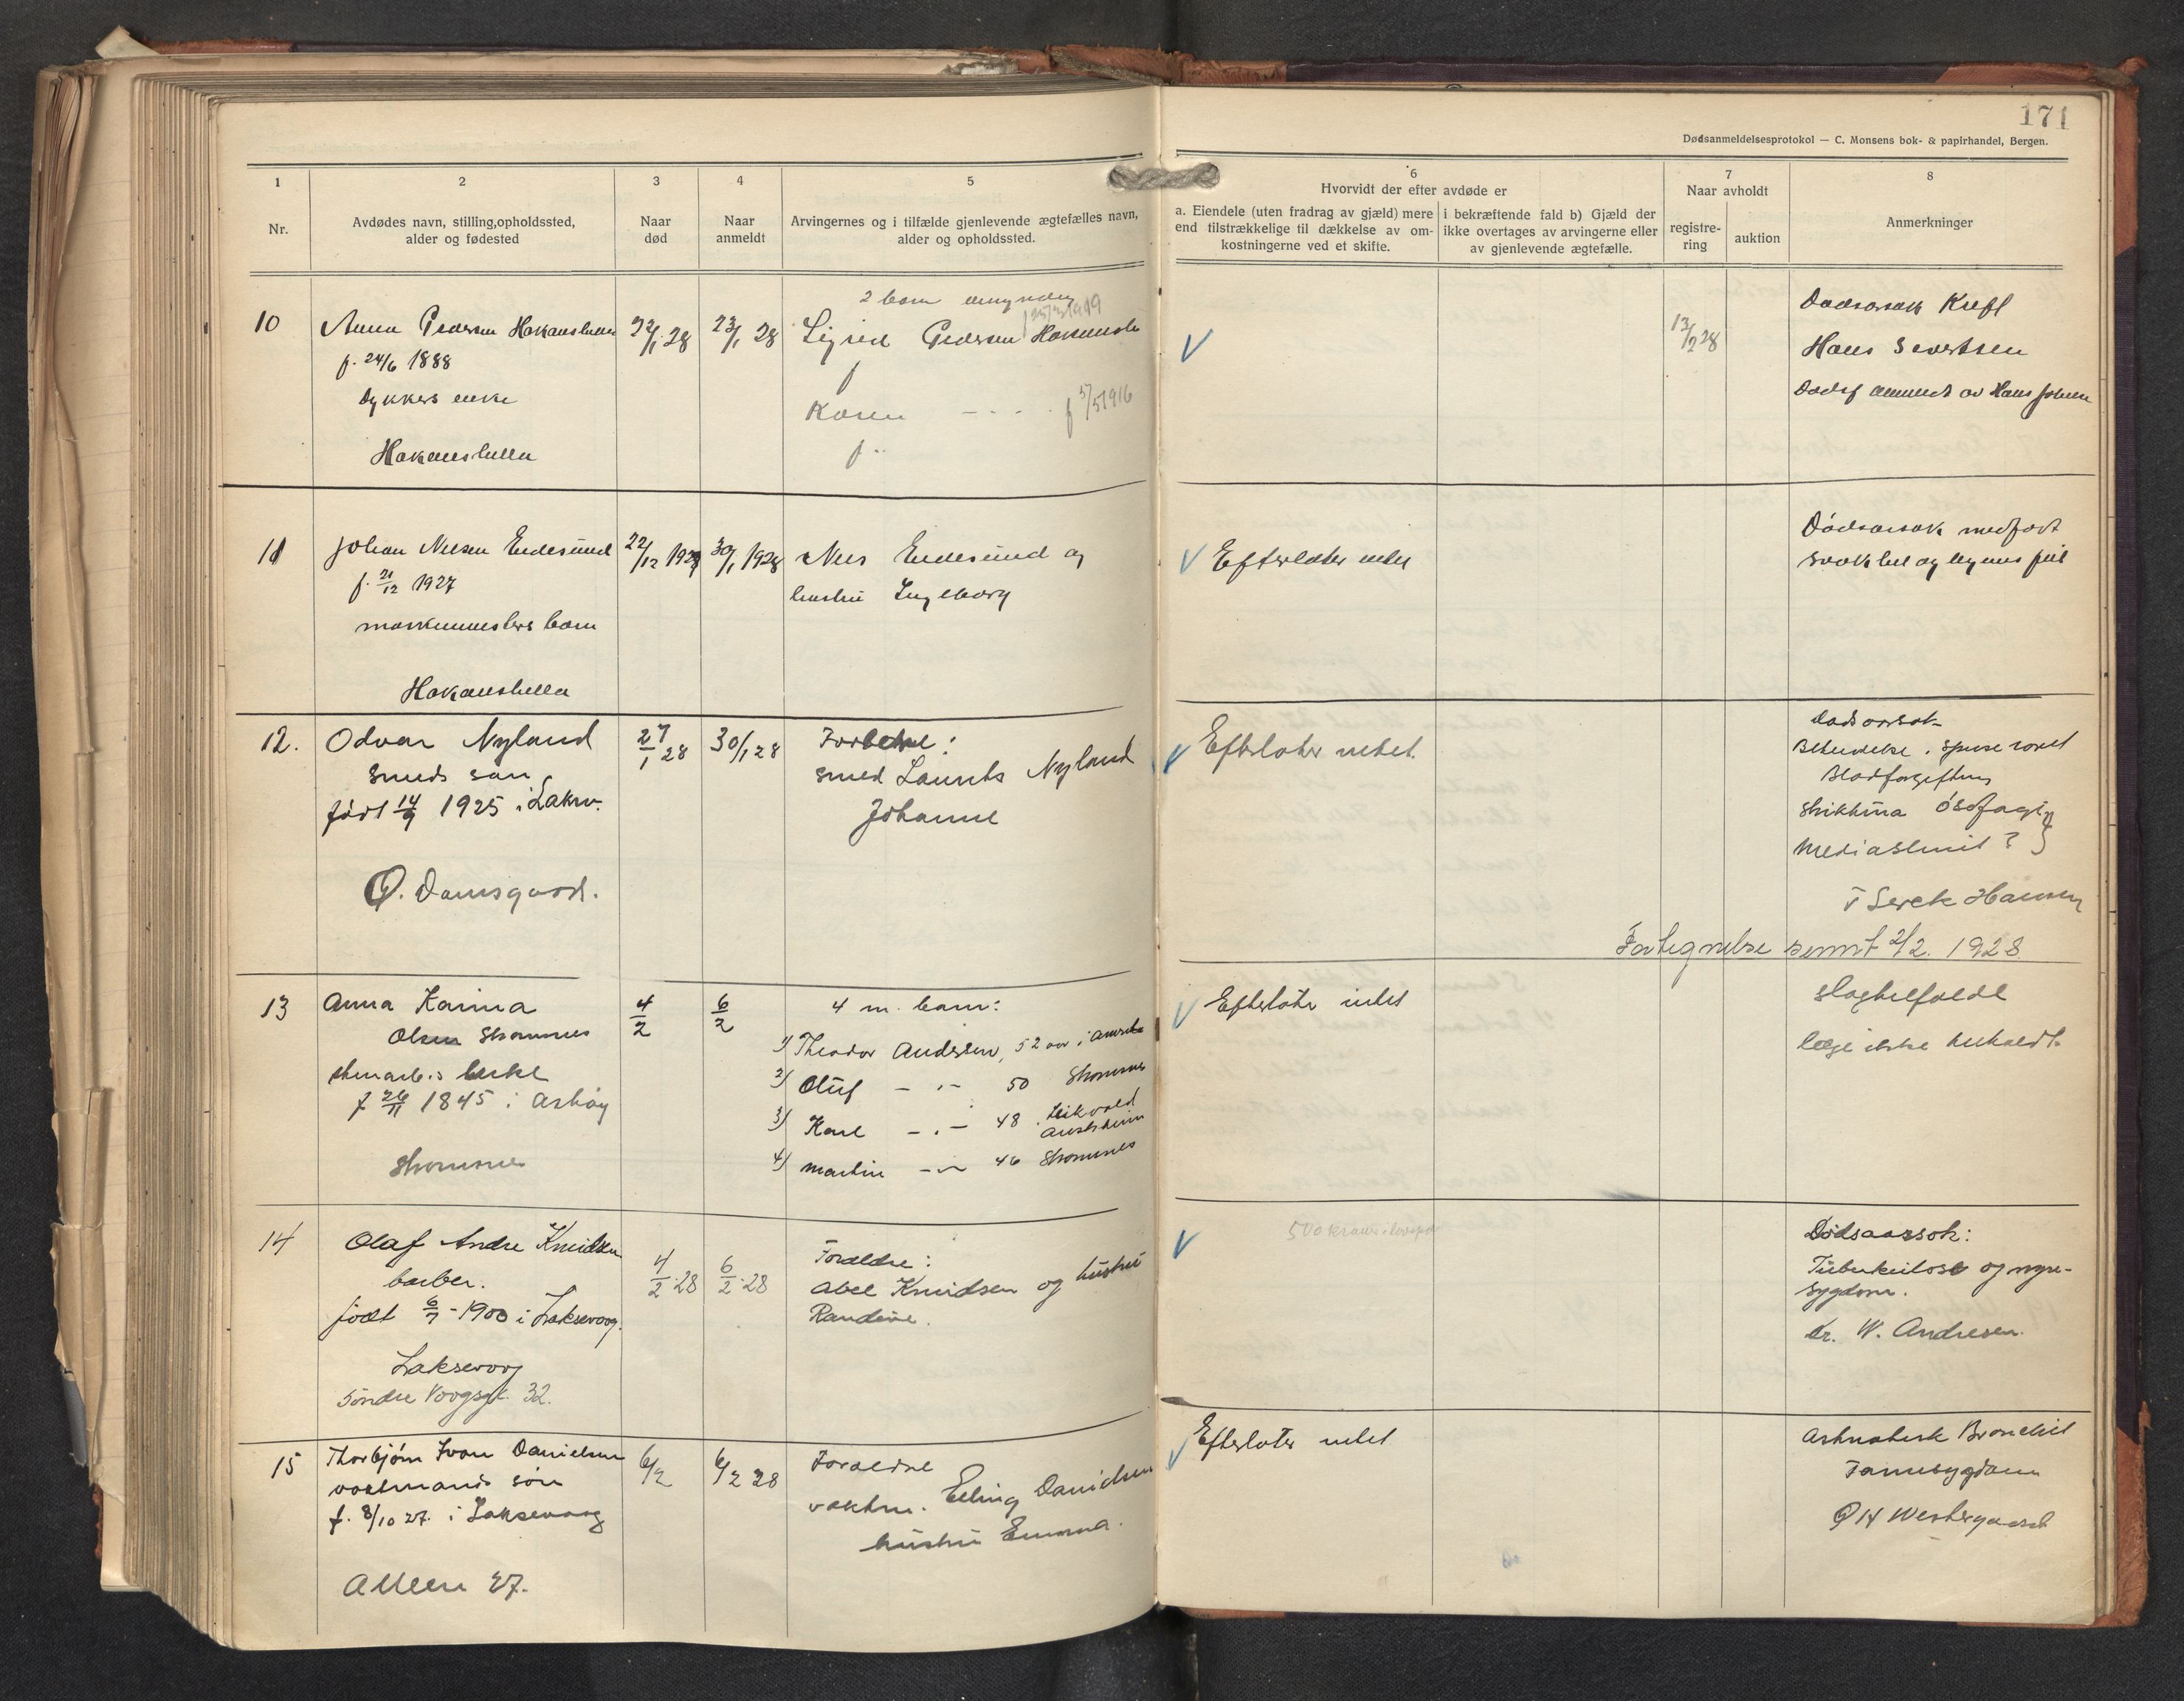 171
Dødsanmeldelsesprotokol — C. Monsens bok- & papirhandel, Bergen.
1
Nr.
2
Avdødes navn, stilling, opholdssted,
alder og fødested
3
Naar
død
4
Naar
anmeldt
5
Arvingernes og i tilfælde gjenlevende ægtefælles navn,
alder og opholdssted.
6
Hvorvidt der efter avdøde er
a. Eiendele (uten fradrag av gjæld) mere
end tilstrækkelige til dækkelse av om-
kostningerne ved et skifte.
i bekræftende fald b) Gjæld der
ikke overtages av arvingerne eller
av gjenlevende ægtefælle.
7
Naar avholdt
registre-
ring
auktion
8
Anmerkninger
10
Anna Pedersen Hakanshella
f. 24/6 1888
Dykkers enke
Hakanshella
22/1 28
23/1 28
2 barn umyndig
Sigrid Pedersen
f
Karen - - - f 5/5 1916
f
13/2 28
Dødsarsak Kreft
Hans Sivertsen
11
Johan Nilsen Eidesund
f. 21/12 1927
maskinmesters barn
Hakanshella
22/12 1927
30/1 1928
Nils Eidesund og
hustru Ingeborg
Efterlater intet
Dödsarsak medfødt
12.
Odvar Nyland
smeds søn
født 14/9 1925 i Laksv.
Ø. Damsgaard.
27/1 28
30/1 28
Forældre:
smed Laurits Nyland
Johanne
Efterlater intet.
Dødsaarsak
Betændelse i spiserøret
Blodforgiftning
Mediastinit ?
Fortegnelse sennt 2/2. 1928
13
Anna Karina
Olsen
enke
f 26/11 1845 i Askøy
4/2
6/2
4 m. barn:
1) Theodor Andersen, 52 aar i Amerika
2) Oluf - " - 50
3) Karl - " - 48
4) Martin - " - 46
Efterlater intet
slagtilfælde
læge ikke
14
Olaf Andre Knudsen
barber.
født 6/7 - 1900 i Laksevaag.
Laksevaag
Söndre Vaagsgt. 32.
4/2 28
6/2 28
Forældre:
Abel Knudsen og hustru
Randine.
500 kroner i
Dødsaarsak:
Tuberkulose og nyre-
sygdom.
Dr. W. Andresen.
15
Thorbjørn Ivan Danielsen
vaktmands søn
f. 8/10 27. i Laksevaag
Alleen 27.
6/2
6/2 28
Forældre
vaktm. Erling Danielsen
hustru Emma.
Efterlater intet
Astmatisk Bronchit
Westergaard